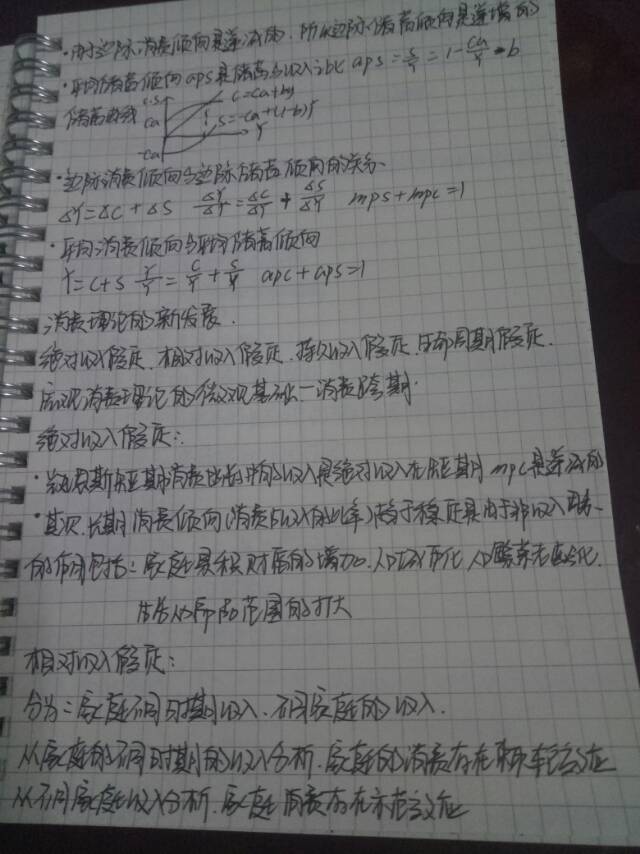 ·由于边际消费倾向是递减的,所以边际储蓄倾向是递增的
·平均储蓄倾向aps是储蓄与收入之比 aps=S/Y=1-Ca/Y-b
储蓄曲线 C.S Ca -Ca C=Ca+by S=-Ca+(1-b)Y Y
·边际消费倾向与边际储蓄倾向的关系.
ΔY=ΔC+ΔS ΔY/ΔY=ΔC/ΔY+ΔS/ΔY mps+mpc=1
·平均消费倾向与平均储蓄倾向
Y=C+S Y/Y=C/Y+S/Y apc+aps=1
消费理论的新发展.
绝对收入假定.相对收入假定.持久收入假定.生命周期假定.
宏观消费理论的微观基础—消费跨期.
绝对收入假定:
·凯恩斯短期消费 的收入是绝对收入在短期 mpc是递减的
·其次.长期消费倾向(消费与收入的比率)趋于稳定是由于非收入因素
的作用包括:家庭累积财富的增加.人口城市化.人口 老龄化.
生活必需品范围的扩大
相对收入假定:
分为:家庭不同时期收入.不同家庭的收入.
从家庭的不同时期的收入分析.家庭的消费存在棘轮效应
从不同家庭收入分析.家庭消费存在示范效应